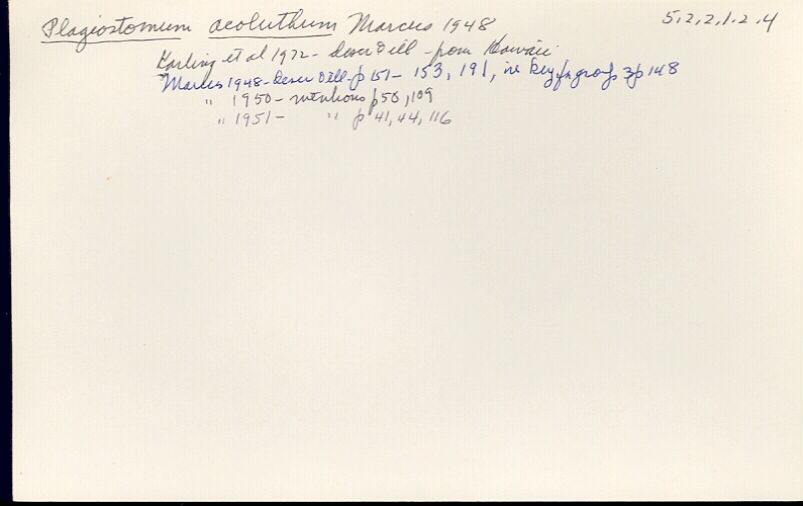 Plagiostomum acoluthum Marcus 1948 5.2.2.1.2.4
Karling et al 1972 - descr & ill - from Hawaii
Marcus 1948 - descr & ill - p 151 - 153, 191, in key fn group 3 p 148
" 1950 - mentions p 50, 109
" 1951 - " p 41, 44, 116